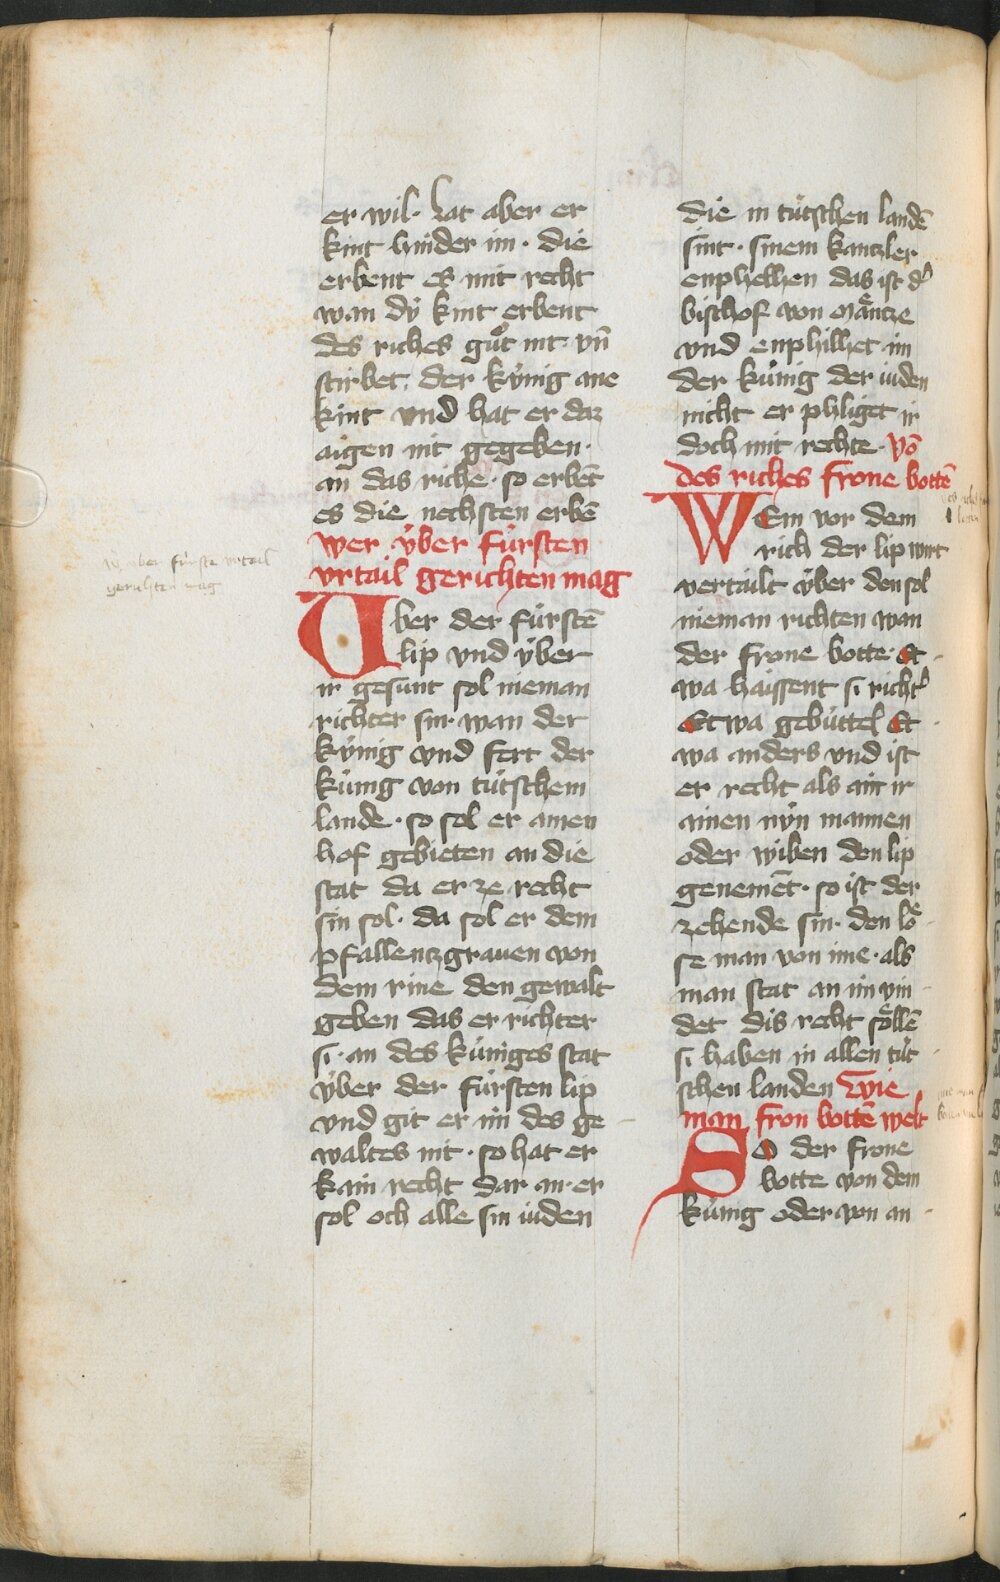 er wil · hat aber er
kint hinder im · die
erbent es mit recht
wan dÿ kint erbent
des riches guͦt nit vn̄
stirbet der kúnig ane
kint vnd hat er daz
aigen nit gegeben ·
an das riche · so erbēt
es die nechsten erbē
wer v́ber fúrsten
vrtail gerichten mag
Uber der fúrstē
lip vnd v́ber
ir gesunt sol nieman
richter sin · wan der
kúnig vnd fert der
kúnig von tútschem
lande · so sol er ainen
hof gebieten an die
stat da er ze recht
sin sol · da sol er dem
pfallentzgrauen von
dem rine den gewalt
geben das er richter
si · an des kúniges stat
v́ber der fúrsten lip
vnd git er im des ge
waltes nit · so hat er
kain recht dar an · er
sol och alle sin iuden
die in tútschen landē
sint · sinem kantzler
enphelhen das ist d'
bischof von Maͤntze
vnd enphilhet im
der kúnig der iuden
nicht er phliget ir
doch mit rechte · Vō
des riches frone bottē
Wem vor dem
rich der lip wirt
vertailt v́ber den sol
nieman richten wan
der frone botte · Et
wa haissent si richt'
Etwa gebúttel Et
wa anders vnd ist
er recht als ain ir
ainen nýn mannen
oder wiben den lip
genemēt · so ist der
zehende sin · den loͤ
se man von ime · als
man stat an im vin
det dis recht soͤllē
si haben in allen tút
schen landen Wie
man fron bottē welt
So der frone
botte von dem
kúnig oder von an